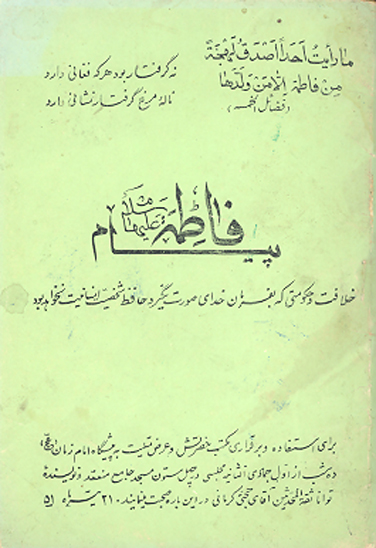 ما رایت احداً اصدق لهجةً
من فاطمه الامن ولدها
(فضائل الخمسه)
نه گرفتار بود هر که فغانی دارد
ناله مرغ گرفتار نشانی دارد
پیام فاطمه سلام الله علیها
خلافت و حکومتی که بفرمان خدای صورت نگیرد حافظ شخصیت انسانیت نخواهد بود
برای استفاده و برقراری مکتب مقدسش و عرض تسلیت به پیشگاه امام زمان (عج)
ده شب از اول جمادی الثانیه مجلسی در چهل ستون مسجد جامع منعقد و نویسنده
توانا ثقة المحدثین آقای حججی کرمانی در این باره صحبت مینمایند ۲۱ تیر ماه ۵۱